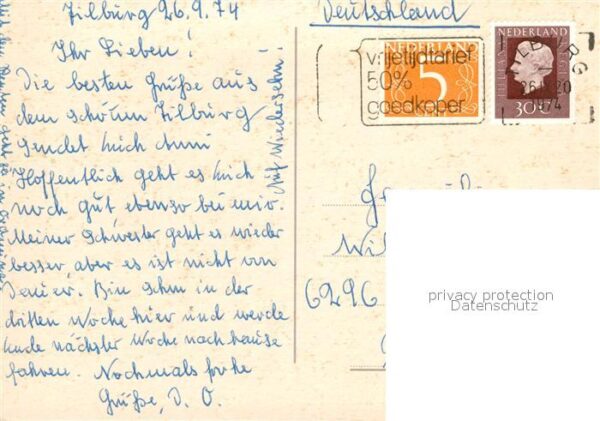 Tilburg 26.9.74
Ihr Lieben!
Die besten Grüße aus
dem schönen Tilburg
sendet Euch
Hoffentlich geht es Euch
noch gut ebenso bei mir.
Meiner Schwester geht es wieder
besser, aber es ist nicht von
Dauer. Bin schon in der
dritten Woche hier und werde
Ende nächster Woche nach hause
fahren. Nochmals frohe
Grüße, D. O.
Auf Wiedersehn
Deutschland
NEDERLAND
5
vrijetijdtarief
50%
goedkoper
NEDERLAND
30c
TILBURG
1974
Wil
6296
privacy protection
Datenschutz